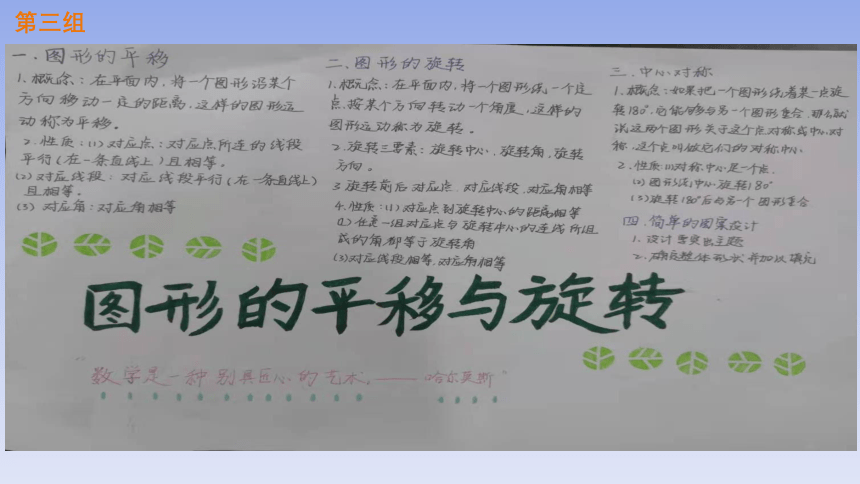 第三组
一.图形的平移
1.概念:在平面内,将一个图形沿某个
方向移动一定的距离,这样的图形运
动称为平移。
2.性质:(1)对应点:对应点所连的线段
平行(在一条直线上)且相等。
(2)对应线段:对应线段平行(在一条直线上)
且相等。
(3)对应角:对应角相等
二.图形的旋转
1.概念:在平面内,将一个图形绕一个定
点按某个方向转动一个角度,这样的
图形运动称为旋转。
2.旋转三要素:旋转中心、旋转角、旋转
方向。
3.旋转前后对应点、对应线段、对应角相等
4.性质:(1)对应点到旋转中心的距离相等
(2)任意一组对应点与旋转中心的连线所组
成的角都等于旋转角
(3)对应线段相等,对应角相等
三.中心对称
1.概念:如果把一个图形绕着某一点旋
转180°,它能够与另一个图形重合,那么就
说这两个图形关于这个点对称或中心对
称,这个点叫做它们的对称中心
2.性质:(1)对称中心是一个点.
(2)图形绕中心旋转180°
(3)旋转180°后与另一个图形重合
四.简单的图案设计
1.设计要突出主题
2.确定整体形式并加以填充
图形的平移与旋转
“数学是一种别具匠心的艺术。——哈尔莫斯”